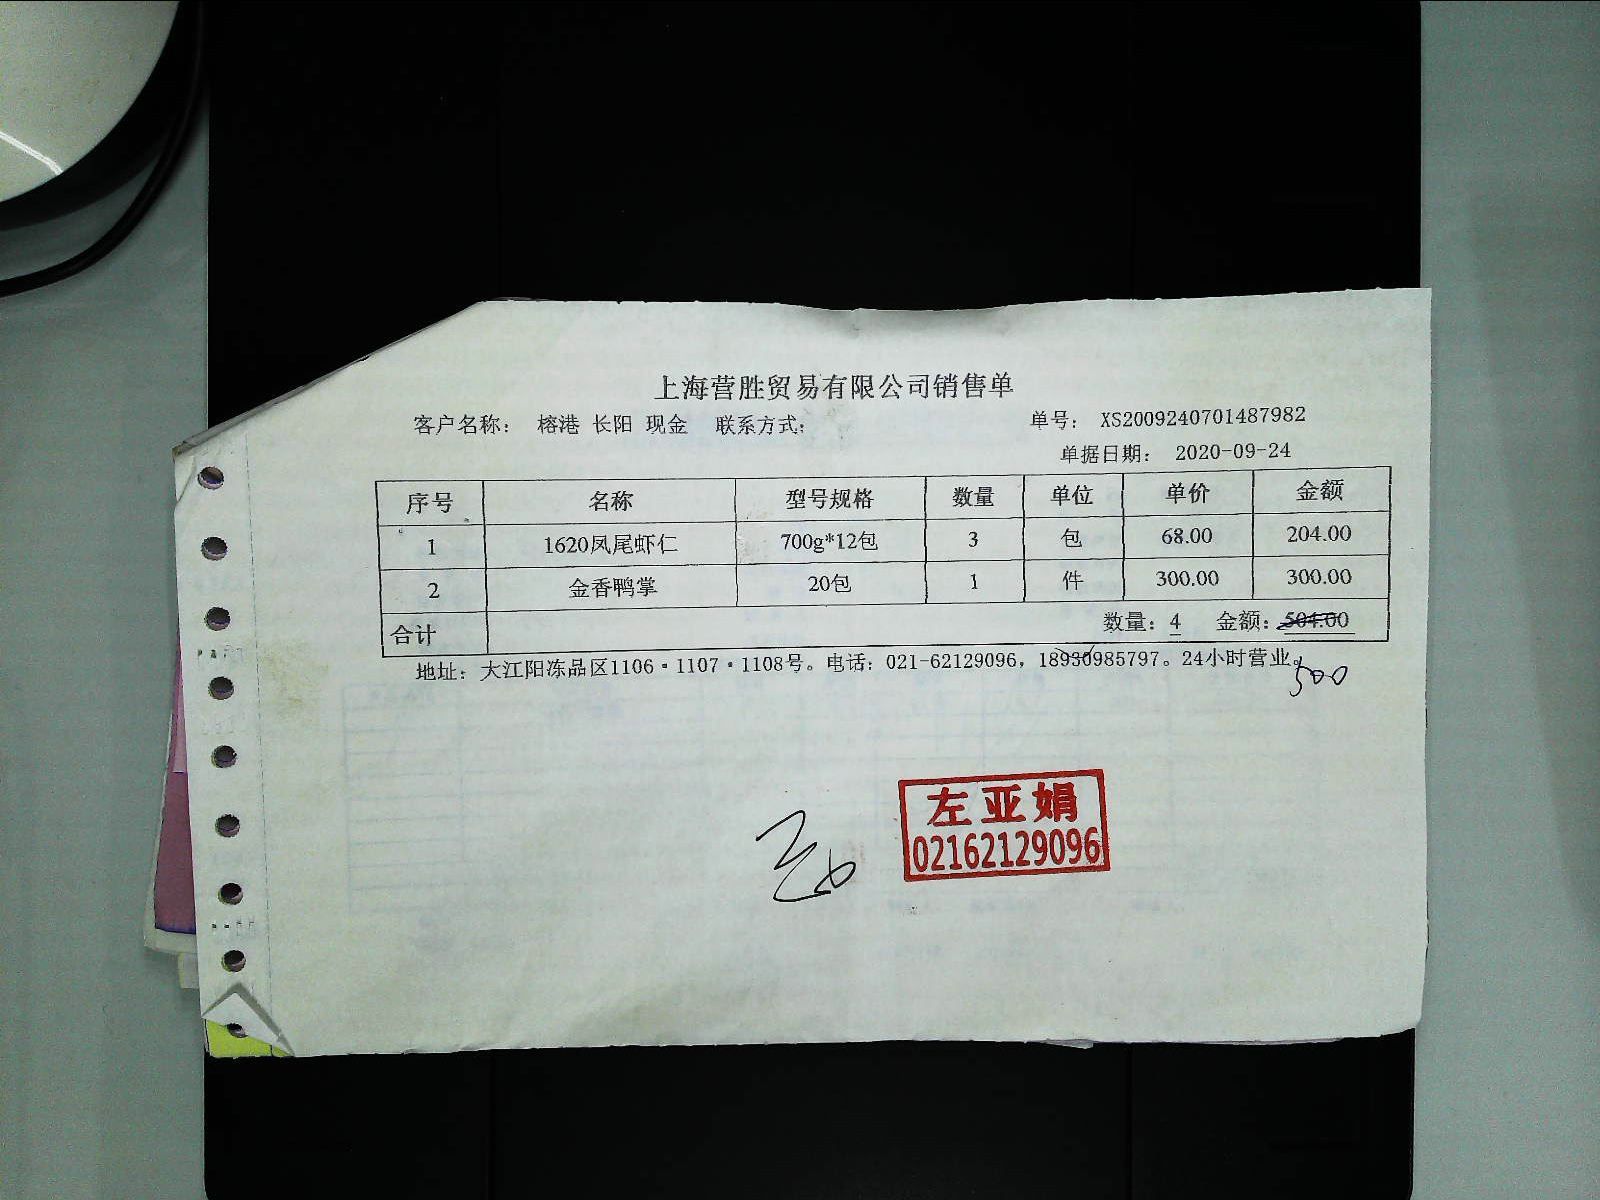 上海营胜贸易有限公司销售单
客户名称： 榕港 长阳 现金 联系方式： 单号： XS2009240701487982
单据日期： 2020-09-24
序号 名称 型号规格 数量 单位 单价 金额
1 1620凤尾虾仁 700g*12包 3 包 68.00 204.00
2 金香鸭掌 20包 1 件 300.00 300.00
合计 数量：4 金额：504.00
地址：大江阳冻品区1106·1107·1108号。电话：021-62129096，18930985797。24小时营业。
500
左亚娟
02162129096